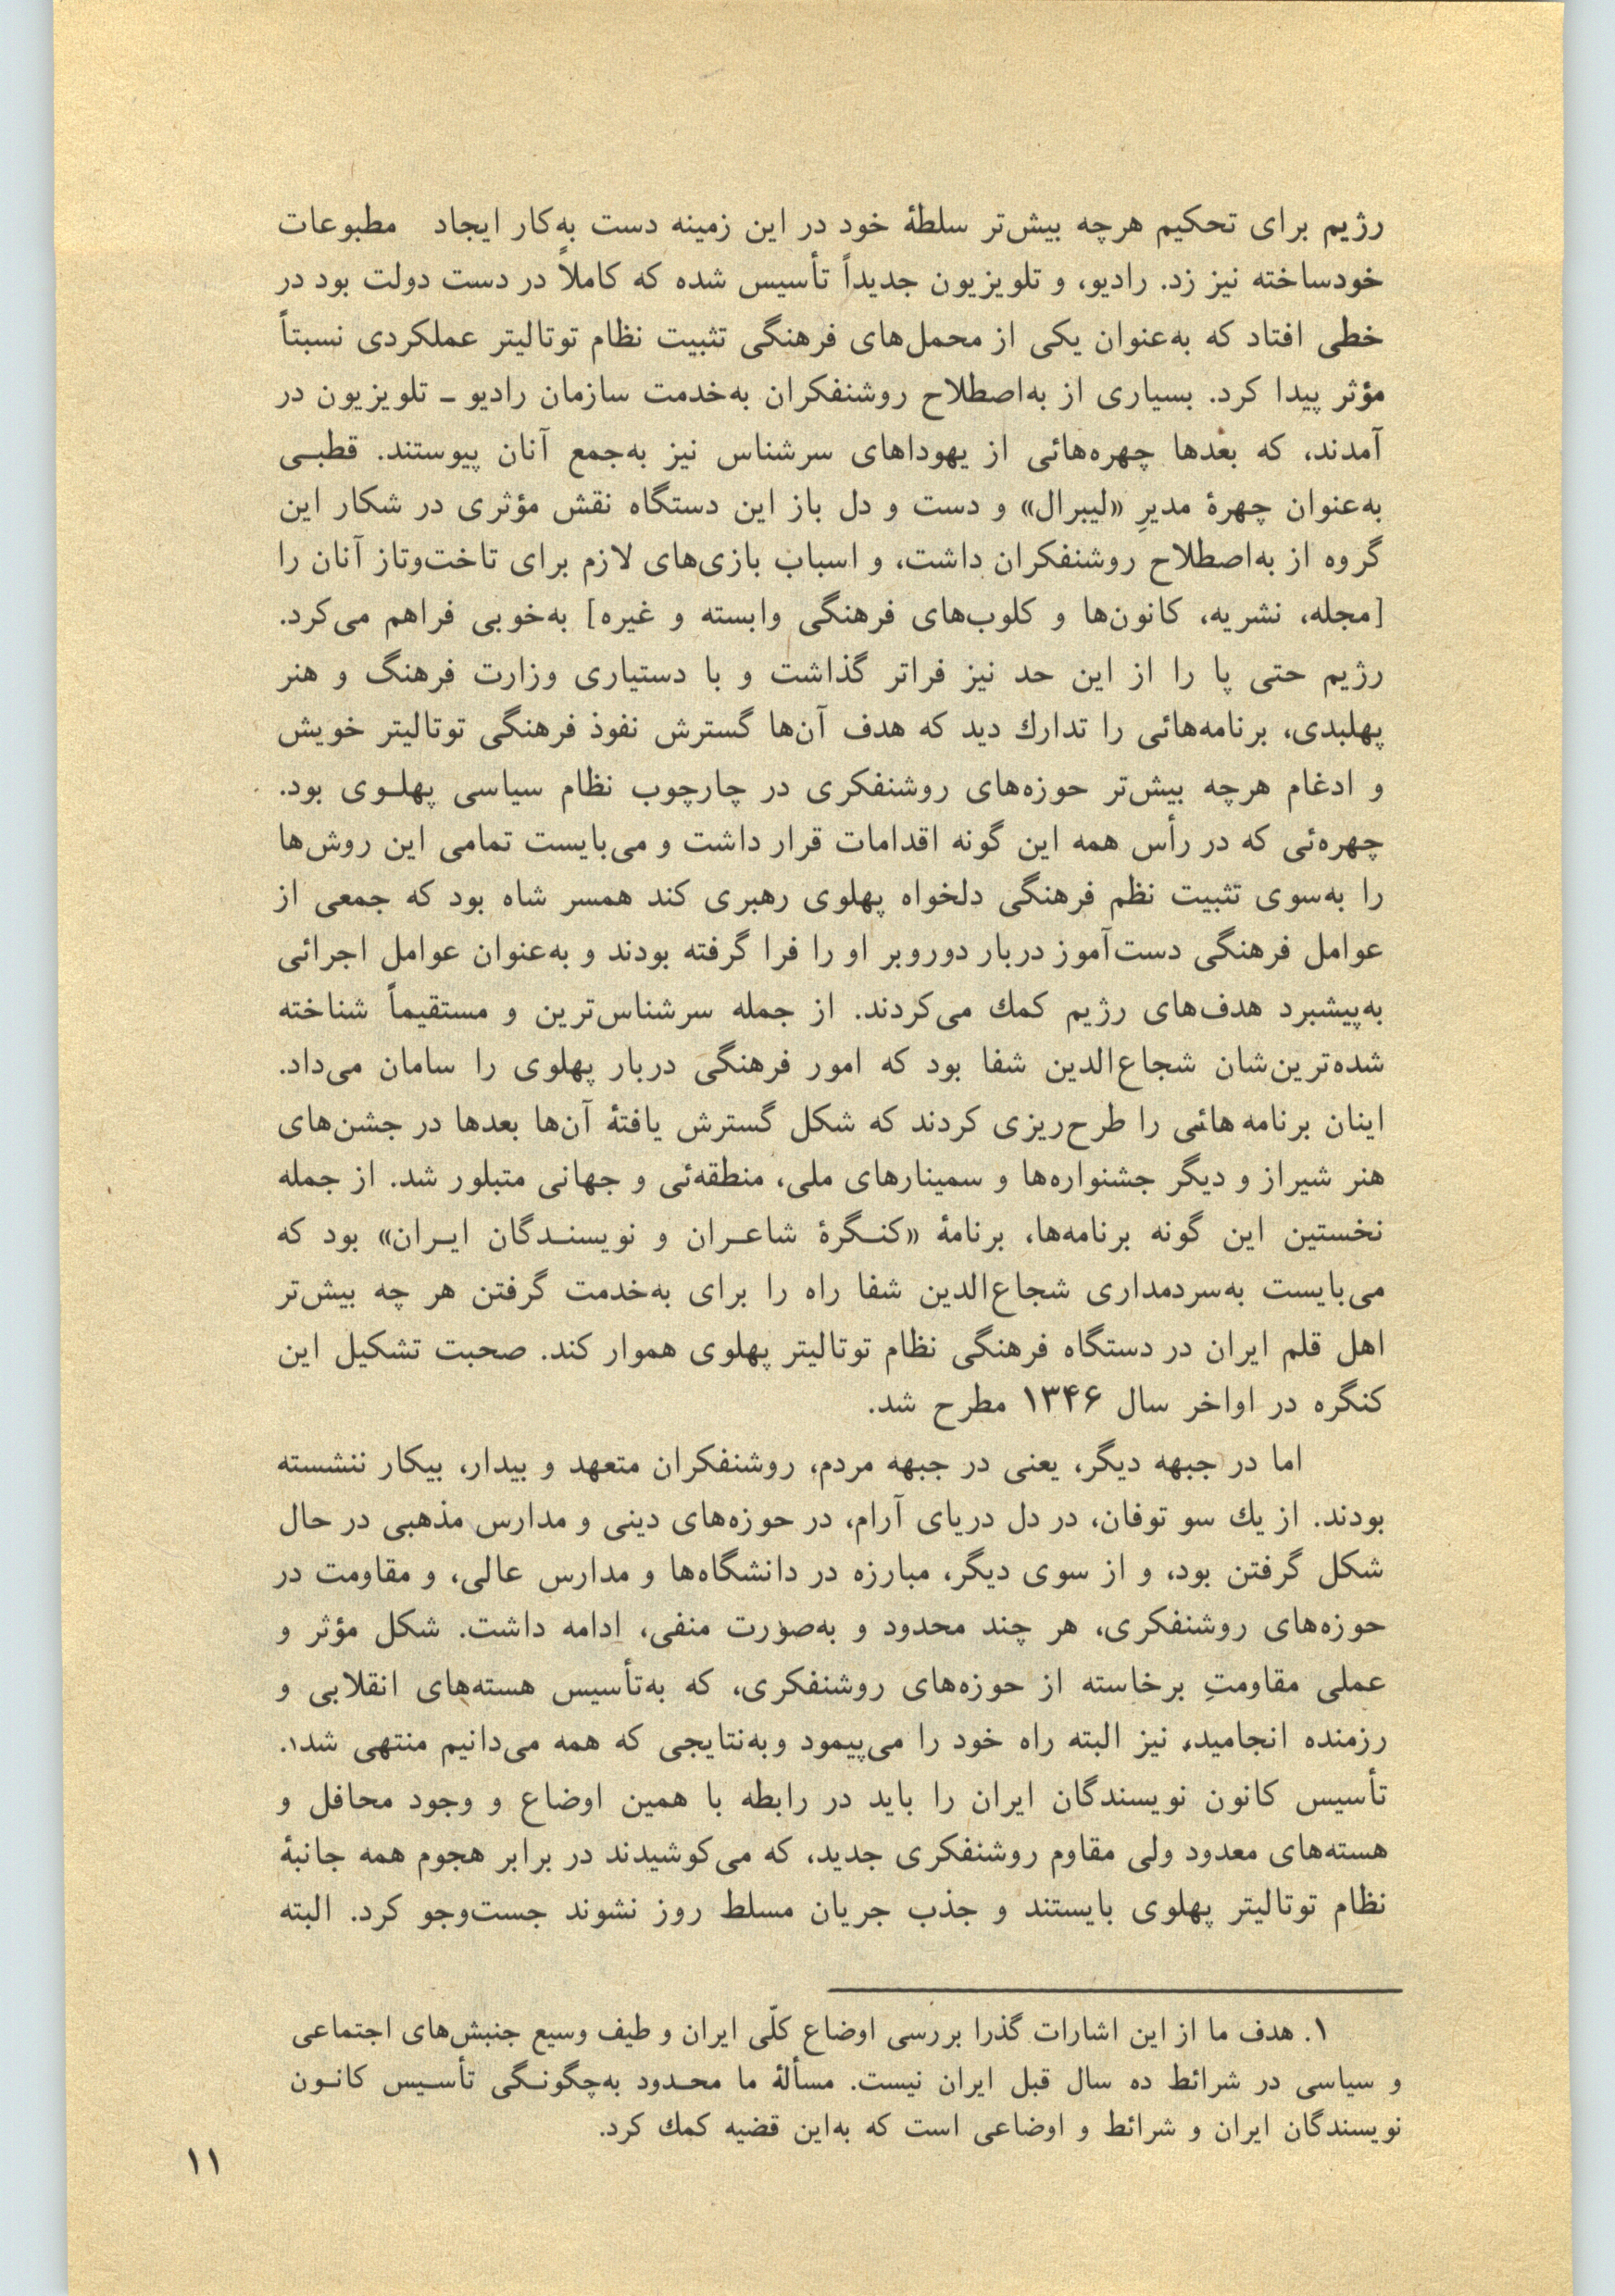 رژیم برای تحکیم هرچه بیش‌تر سلطهٔ خود در این زمینه دست به‌کار ایجاد مطبوعات
خودساخته نیز زد. رادیو، و تلویزیون جدیداً تأسیس شده که کاملاً در دست دولت بود در
خطی افتاد که به‌عنوان یکی از محمل‌های فرهنگی تثبیت نظام توتالیتر عملکردی نسبتاً
مؤثر پیدا کرد. بسیاری از به‌اصطلاح روشنفکران به‌خدمت سازمان رادیو ـ تلویزیون در
آمدند، که بعدها چهره‌هائی از یهوداهای سرشناس نیز به‌جمع آنان پیوستند. قطبـی
به‌عنوان چهرهٔ مدیرِ «لیبرال» و دست و دل باز این دستگاه نقش مؤثری در شکار این
گروه از به‌اصطلاح روشنفکران داشت، و اسباب بازی‌های لازم برای تاخت‌وتاز آنان را
[مجله، نشریه، کانون‌ها و کلوب‌های فرهنگی وابسته و غیره] به‌خوبی فراهم می‌کرد.
رژیم حتی پا را از این حد نیز فراتر گذاشت و با دستیاری وزارت فرهنگ و هنر
پهلبدی، برنامه‌هائی را تدارك دید که هدف آن‌ها گسترش نفوذ فرهنگی توتالیتر خویش
و ادغام هرچه بیش‌تر حوزه‌های روشنفکری در چارچوب نظام سیاسی پهلـوی بود.
چهره‌ئی که در رأس همه این گونه اقدامات قرار داشت و می‌بایست تمامی این روش‌ها
را به‌سوی تثبیت نظم فرهنگی دلخواه پهلوی رهبری کند همسر شاه بود که جمعی از
عوامل فرهنگی دست‌آموز دربار دوروبر او را فرا گرفته بودند و به‌عنوان عوامل اجرائی
به‌پیشبرد هدف‌های رژیم کمك می‌کردند. از جمله سرشناس‌ترین و مستقیماً شناخته
شده‌ترین‌شان شجاع‌الدین شفا بود که امور فرهنگی دربار پهلوی را سامان می‌داد.
اینان برنامه هائی را طرح‌ریزی کردند که شکل گسترش یافتهٔ آن‌ها بعدها در جشن‌های
هنر شیراز و دیگر جشنواره‌ها و سمینارهای ملی، منطقه‌ئی و جهانی متبلور شد. از جمله
نخستین این گونه برنامه‌ها، برنامهٔ «کنـگرهٔ شاعـران و نویسنـدگان ایـران» بود که
می‌بایست به‌سردمداری شجاع‌الدین شفا راه را برای به‌خدمت گرفتن هر چه بیش‌تر
اهل قلم ایران در دستگاه فرهنگی نظام توتالیتر پهلوی هموار کند. صحبت تشکیل این
کنگره در اواخر سال ۱۳۴۶ مطرح شد.
اما در جبهه دیگر، یعنی در جبهه مردم، روشنفکران متعهد و بیدار، بیکار ننشسته
بودند. از یك سو توفان، در دل دریای آرام، در حوزه‌های دینی و مدارس مذهبی در حال
شکل گرفتن بود، و از سوی دیگر، مبارزه در دانشگاه‌ها و مدارس عالی، و مقاومت در
حوزه‌های روشنفکری، هر چند محدود و به‌صورت منفی، ادامه داشت. شکل مؤثر و
عملی مقاومتِ برخاسته از حوزه‌های روشنفکری، که به‌تأسیس هسته‌های انقلابی و
رزمنده انجامید، نیز البته راه خود را می‌پیمود وبه‌نتایجی که همه می‌دانیم منتهی شد۱.
تأسیس کانون نویسندگان ایران را باید در رابطه با همین اوضاع و وجود محافل و
هسته‌های معدود ولی مقاوم روشنفکری جدید، که می‌کوشیدند در برابر هجوم همه جانبهٔ
نظام توتالیتر پهلوی بایستند و جذب جریان مسلط روز نشوند جست‌وجو کرد. البته
۱. هدف ما از این اشارات گذرا بررسی اوضاع کلّی ایران و طیف وسیع جنبش‌های اجتماعی
و سیاسی در شرائط ده سال قبل ایران نیست. مسألهٔ ما محـدود به‌چگونـگی تأسـیس کانـون
نویسندگان ایران و شرائط و اوضاعی است که به‌این قضیه کمك کرد.
۱۱